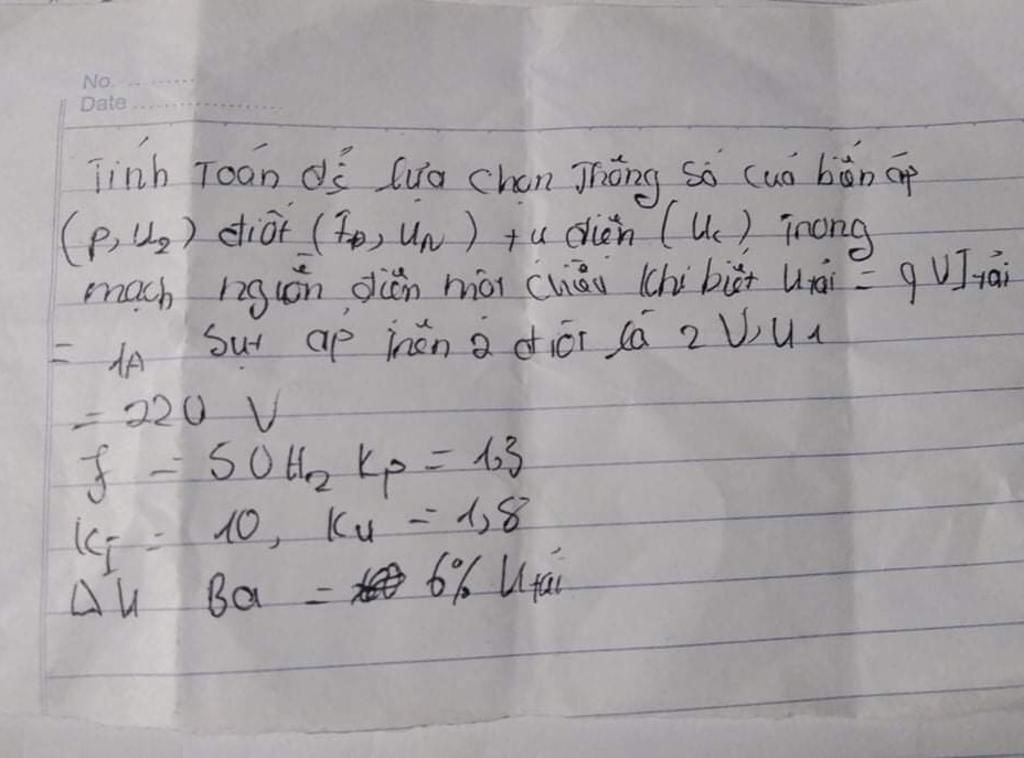 No. ............
Date ........................
Tính Toán để lựa chọn Thông số của biến áp
(P, U2) điôt (ID, UN) tụ điện (Uc) trong
mạch nguồn điện một chiều khi biết Utải = 9 V Itải
= 1A Sụt áp trên 2 điôt là 2 V, U1
= 220 V
f = 50Hz Kp = 1,3
KI = 10, Ku = 1,8
ΔU Ba = 6% Utải